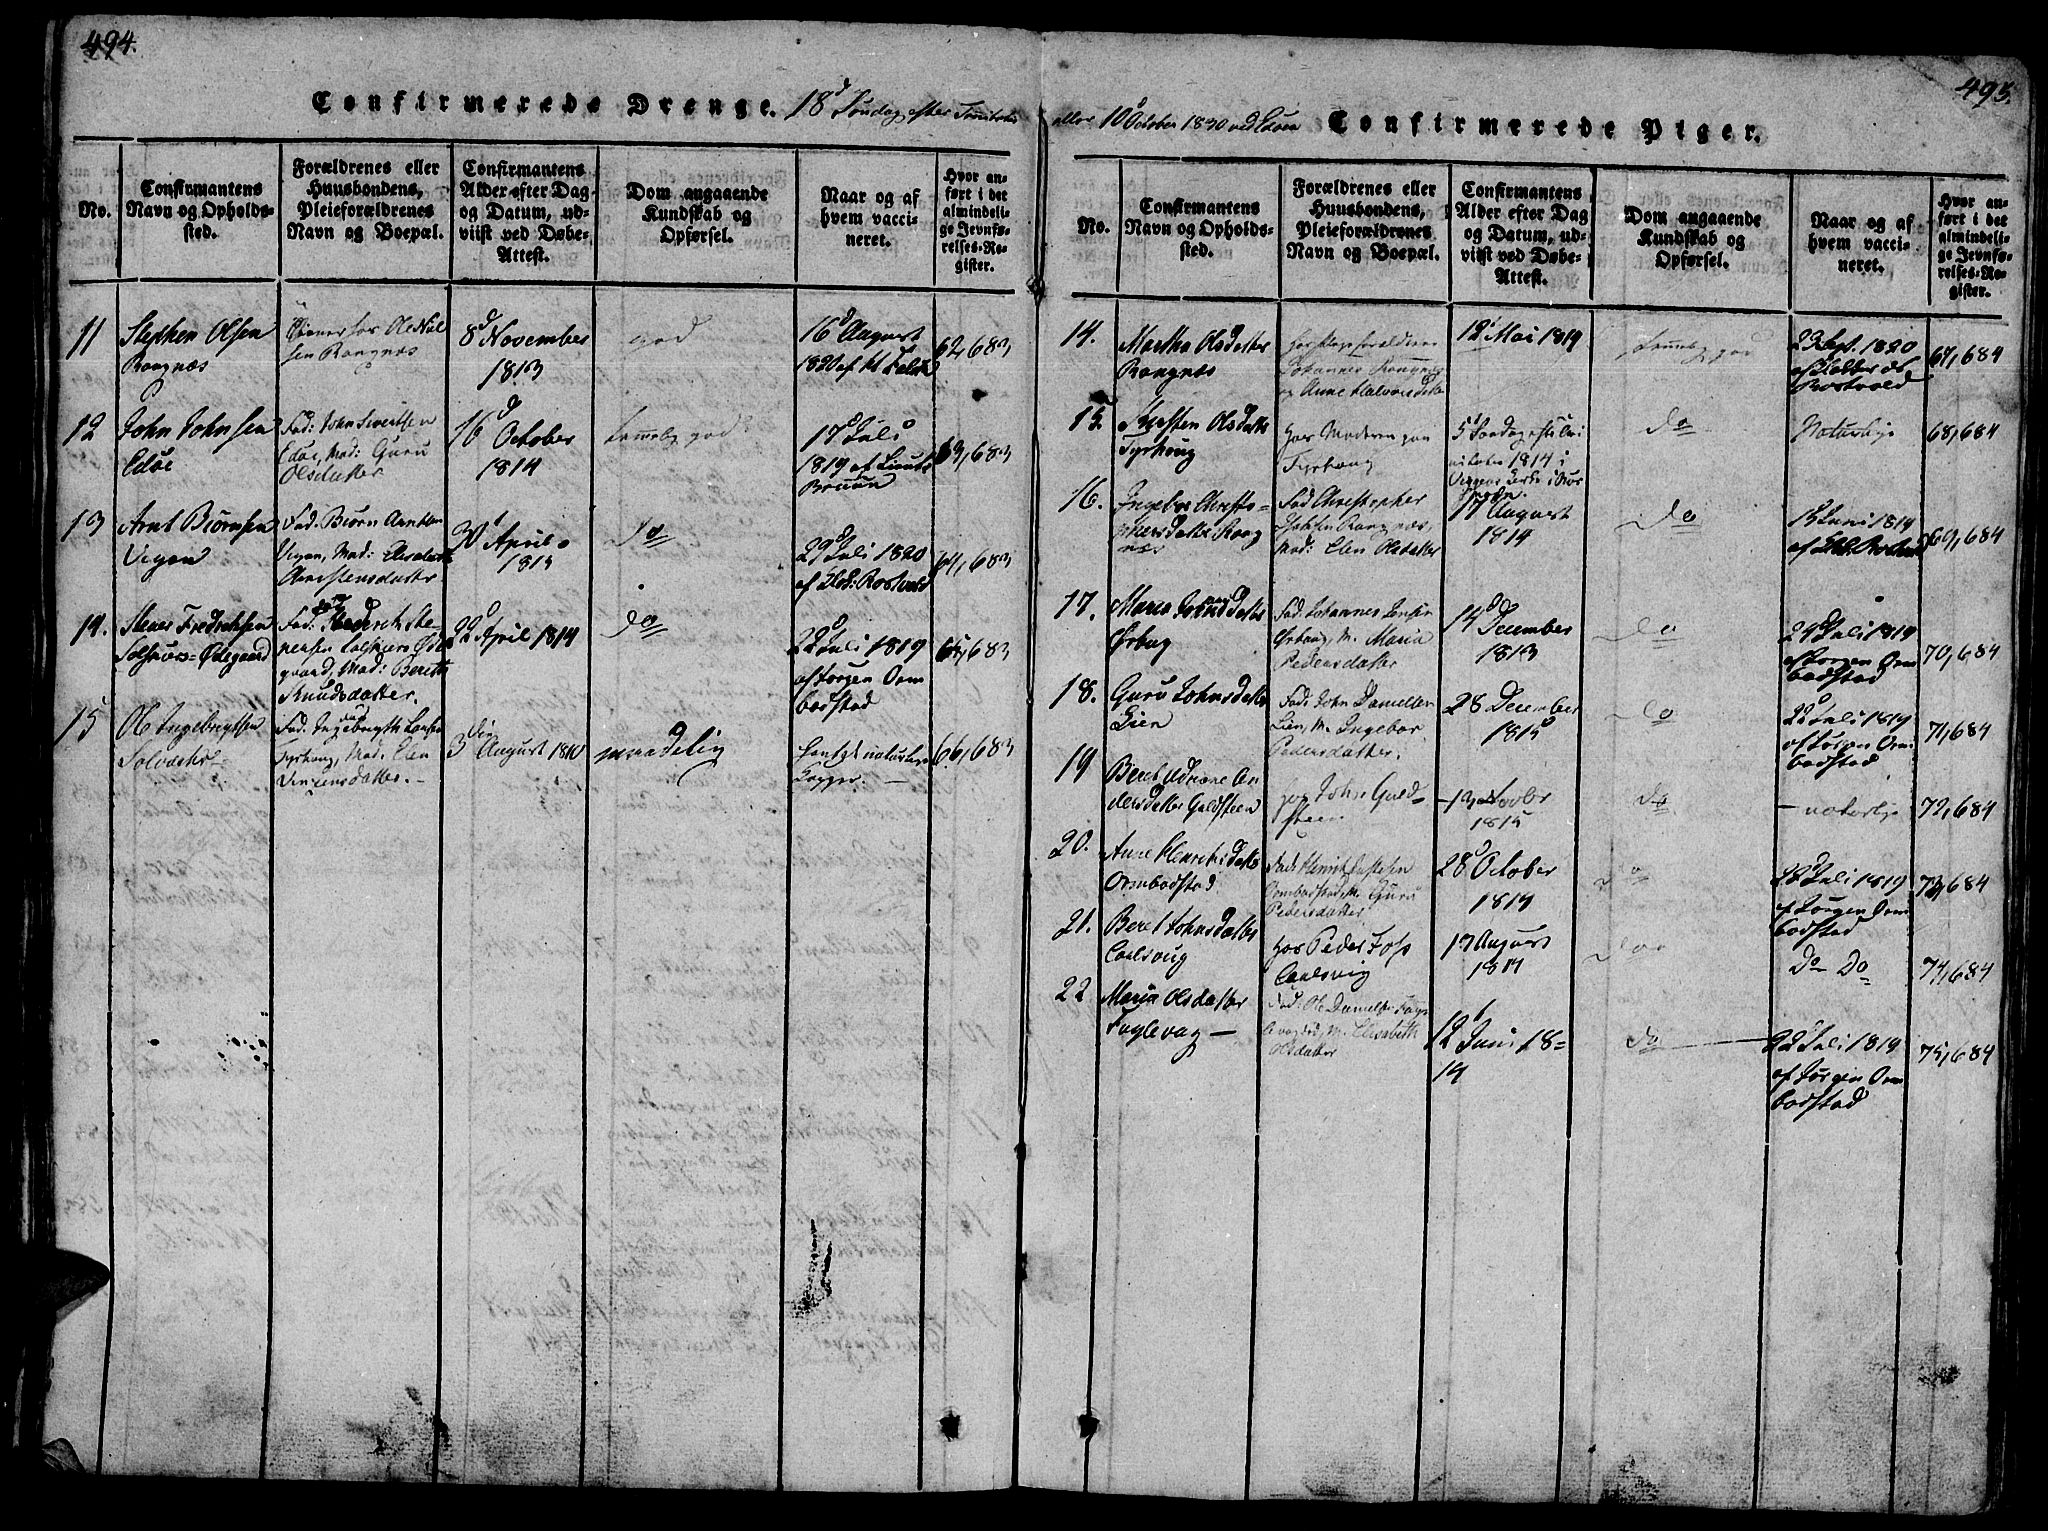 494.
Confirmerede Drenge. 18d Søndag efter Trinitatis
No.
Confirmantens
Navn og Opholds-
sted.
Forældrenes eller
Huusbondens,
Pleieforældrenes
Navn og Boepæl.
Confirmantens
Alder efter Dag
og Datum, ud-
viist ved Døbe-
Attest.
Dom angaaende
Kundskab og
Opførsel.
Naar og af
hvem vacci-
neret.
Hvor an-
ført i det
almindeli-
ge Jevnfø-
relses-Re-
gister.
11
Stephen Olsen
Rangnæs
Tiener hos Ole Niel
sen Rangnæs
8d November
1813
god
16d August
1820 af
62,683
12
John Johnsen
Edøe
Fad: John Sivertsen
Edøe, Mad: Guru
Olsdatter
16d October
1814
temmelig god
17d Juli
1819 af Lieut:
Bruun
63,683
13
Arnt Biørnsen
Vegen
Fad. Biørn Arntsen
Vegen, Mad:
Christensdatter
30 April
1815
Do
29d Juli 1820
af Klok: Rostvold
64,683
14.
Stener Fredrichsen
Solsnær-Ødegaard
Fad: Frederich Ste-
nersen Øde
gaard, Mad: Bereth
Knudsdatter.
22d April 1814
Do
22d Juli 1819
af Jørgen Orm
badstad
65,683
15
Ole Ingebregtsen
Fad. Ingebregth Larsen
Tyrhoug, Mad. Elen
3 August 1810
maadelig
havt de naturlige
Kopper
66,683
495.
eller 10d October 1830 ved Edøen Confirmerede Piger.
No.
Confirmantens
Navn og Opholds-
sted.
Forældrenes eller
Huusbondens,
Pleieforældrenes
Navn og Boepæl.
Confirmantens
Alder efter Dag
og Datum, ud-
viist ved Døbe-
Attest.
Dom angaaende
Kundskab og
Opførsel.
Naar og af
hvem vacci-
neret.
Hvor an-
ført i det
almindeli-
ge Jevnfø-
relses-Re-
gister.
14.
Martha Olsdatter
Rangnæs
hos Pleieforældrene
Johannes Rangnæs
og Anne Halvorsdatter
12 Mai 1814
temmelig god
23 Sept. 1820
af Klokker
Rostvold
67,684
15
Kirsten Olsdatter
Tyrhoug
hos Moderen paa
Tyrhoug
5d Søndag efter Tri
nitatis 1814 i
do
Naturlige
68,684
16.
Ingebor Christo-
phersdatter Rang
næs
Fad Christopher
Rangnæs,
Mad: Elen Olsdatter
17 August
1814
do
13 Juni 1814
af
69,684
17.
Maren
Ørbug
Fad: Johannes Jensen
Ørhoug, M. Maria
Pedersdatter
14d December
1813
do
29d Juli 1819
af Jørgen Orm
badstad
70,684
18.
Guru Johnsdatter
Lien
Fad: John Danielsen
Lien, M. Ingebor
Pedersdatter.
28 December
1815
do
22d Juli 1819
af Jørgen Orm
badstad
71,684
19
Beret An
dersdatter Guldsteen
hos John Guld-
steen
13 Novbr
1815
do
naturlige
72,684
20.
Ane Henrichsdatter
Ormbadstad
Fad: Henrich
Ormbadstad, M. Guru
Pedersdatter
28d October
1814
do
22d Juli 1819
af Jørgen Orm
badstad
73,684
21.
Beret Johnsdatter
Carlsvig
hos Peder
Carlsvig
17 August
1814
do
Do Do
74,684
22
Maria Olsdatter
Fuglevag
Fad: Ole Danielsen Fug
levag, M. Elisabeth
Olsdatter
12 Juni 18=
14
do
22 Juli 1819
af Jørgen Orm
badstad
75,684